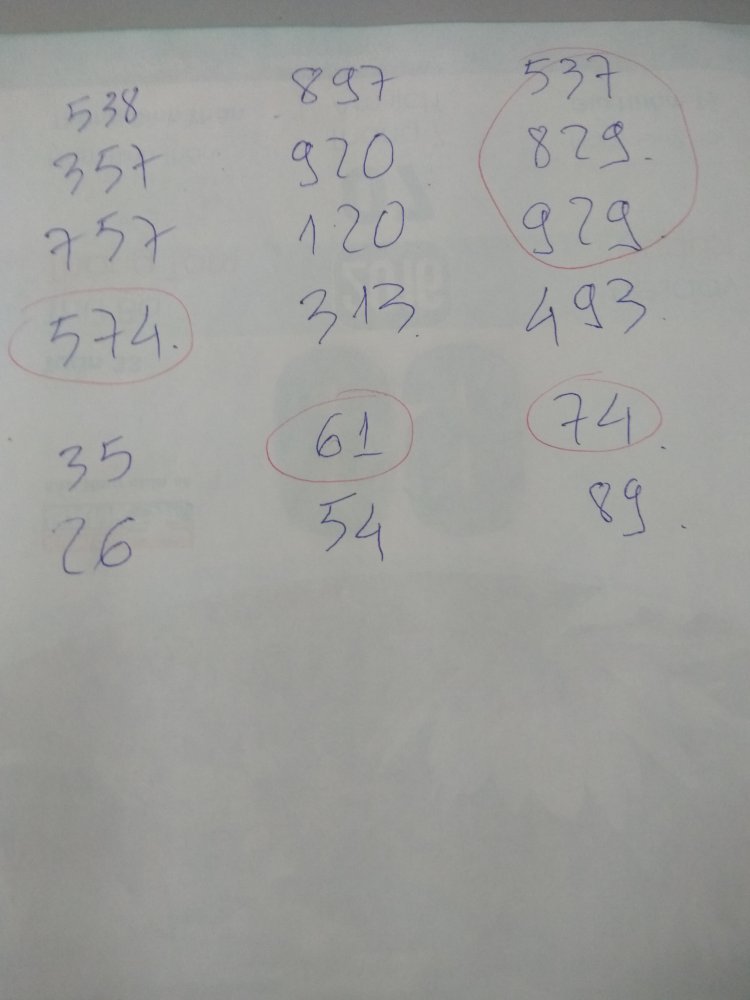 538 897 537
357 920 829.
757 120 929.
574. 313. 493.
35 61 74.
26 54 89.